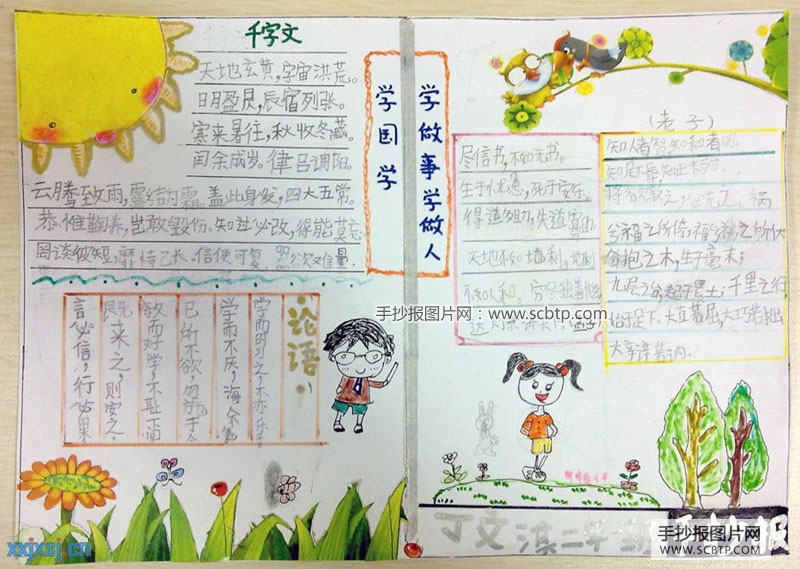 千字文
天地玄黄,宇宙洪荒。
日月盈昃,辰宿列张。
寒来暑往,秋收冬藏。
闰余成岁。律吕调阳。
云腾致雨,露结为霜。盖此身发,四大五常。
恭惟鞠养,岂敢毁伤。知过必改,得能莫忘
罔谈彼短,靡恃己长。信使可复,器欲难量。
学国学
学做事学做人
论语
学而时习之,不亦
学而不厌,诲人不
己所不欲,勿施于
敏而好学,不耻下问
既来之,则安之。
言必信,行必果
尽信书,不如无书。
生于忧患,死于安乐。
得道多助,失道寡助
天地不如地利,地利
不如人和。穷
达
(孟子)
(老子)
知人者智知
知足
将欲
祸
兮福之所倚,福兮祸之所伏
合抱之木,生于毫末;
九层之台,起于累土;千里之行
始于足下。大直若屈,大巧若拙
大辛
手抄报图片网:www.scbtp.com
丁文淇二年
手抄报图片网
WWW.SCBTP.COM
xxjxsj.cn